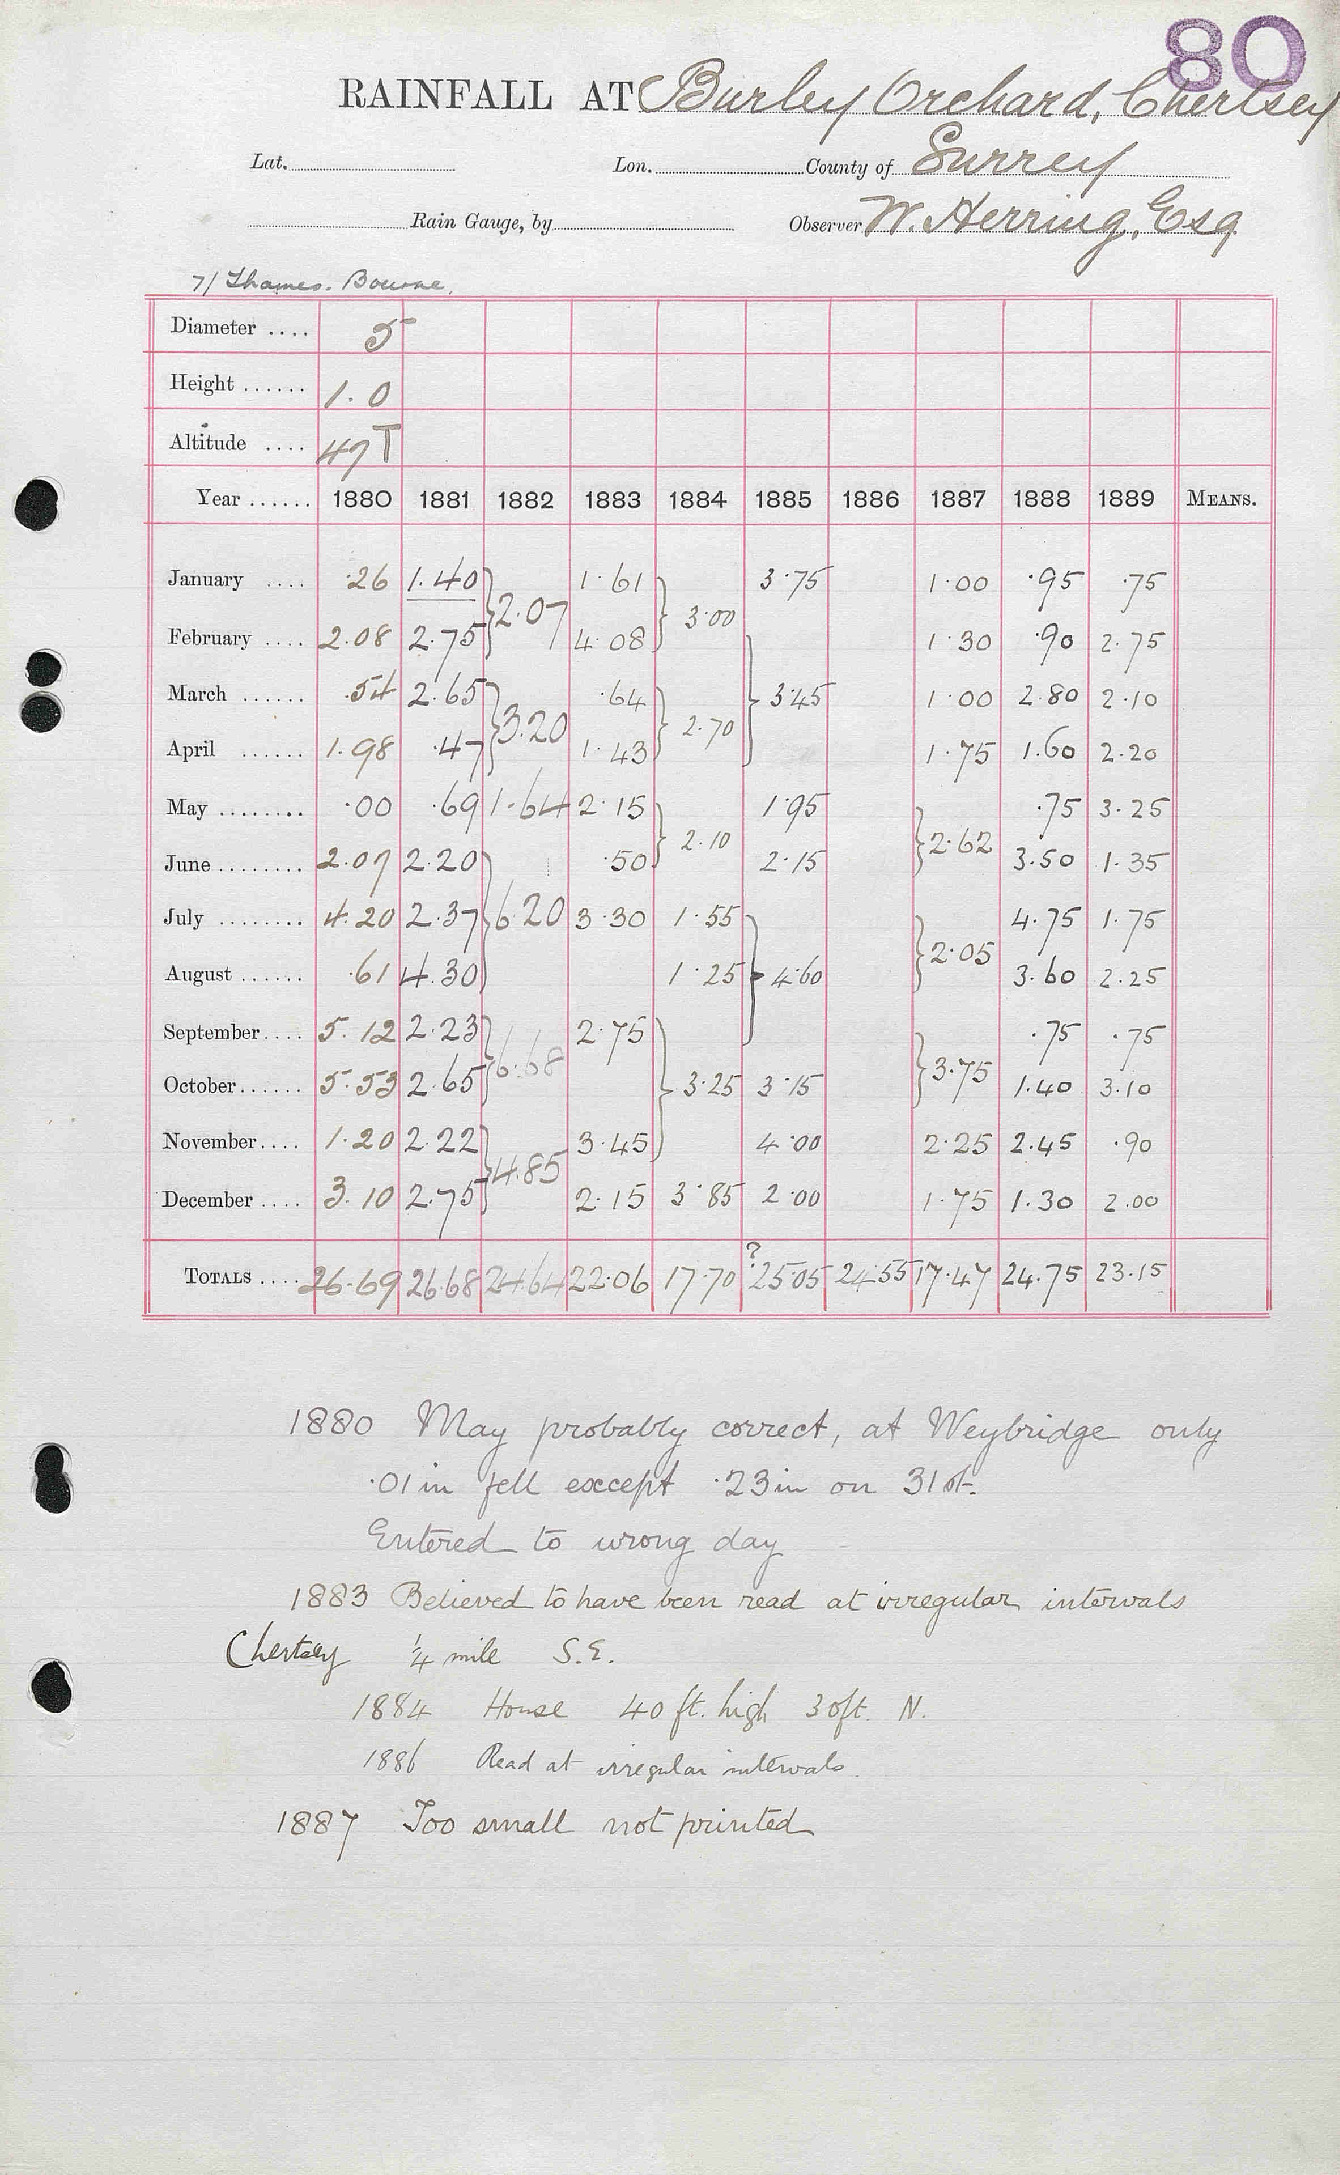 80
RAINFALL AT Burley Orchard, Chertsey
Lat. Lon. County of Surrey
Rain Gauge, by Observer W. Herring, Esq
7/ Thames. Bourne.
Diameter .... 5
Height ...... 1.0
Altitude .... 47 T
Year ...... 1880 1881 1882 1883 1884 1885 1886 1887 1888 1889 MEANS.
January .... .26 1.40 } 2.07 1.61 } 3.00 3.75 1.00 .95 .75
February .... 2.08 2.75 4.08 } 3.45 1.30 .90 2.75
March ...... .54 2.65 } 3.20 .64 } 2.70 1.00 2.80 2.10
April ...... 1.98 .47 1.43 1.75 1.60 2.20
May ........ .00 .69 1.64 2.15 } 2.10 1.95 } 2.62 .75 3.25
June ........ 2.07 2.20 } 6.20 .50 2.15 3.50 1.35
July ........ 4.20 2.37 3.30 1.55 } 4.60 } 2.05 4.75 1.75
August ...... .61 4.30 1.25 3.60 2.25
September .... 5.12 2.23 } 6.68 2.75 } 3.25 } 3.75 .75 .75
October ...... 5.53 2.65 3.15 1.40 3.10
November .... 1.20 2.22 } 4.85 3.45 4.00 2.25 2.45 .90
December .... 3.10 2.75 2.15 3.85 2.00 1.75 1.30 2.00
TOTALS .... 26.69 26.68 24.64 22.06 17.70 ? 25.05 24.55 17.47 24.75 23.15
1880 May probably correct, at Weybridge only
.01 in fell except .23 in on 31st.
Entered to wrong day
1883 Believed to have been read at irregular intervals
Chertsey 1/4 mile S.E.
1884 House 40 ft. high 30 ft. N.
1886 Read at irregular intervals.
1887 Too small not printed